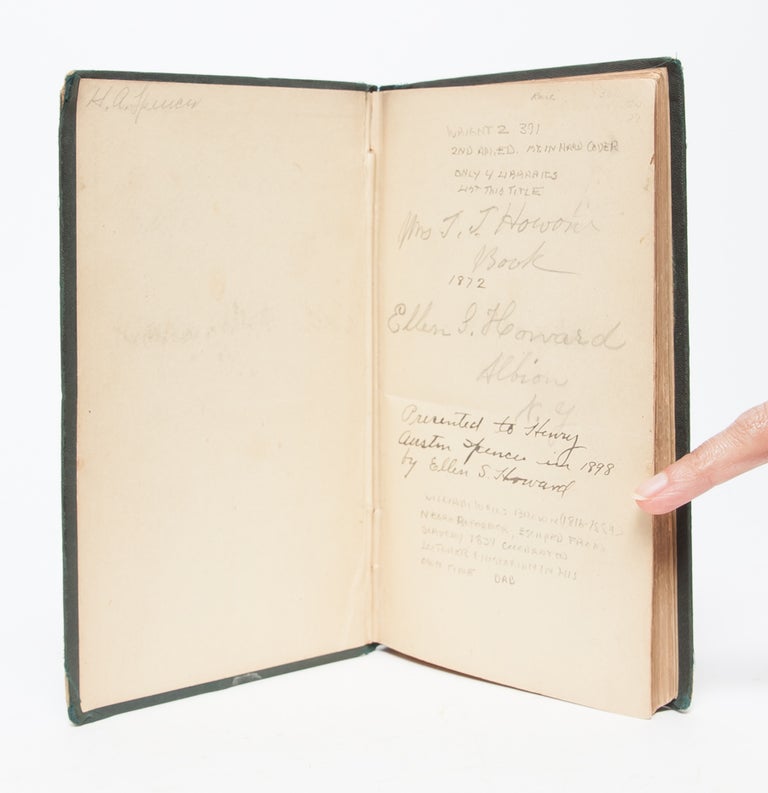 H. A. Spencer
Rare
WRIGHT 2 371
2ND ED. IN HARD COVER
ONLY 4 LIBRARIES
LIST THIS TITLE
Mrs J. J. Howard
Book
1872
Ellen S. Howard
Albion
N. Y.
Presented to Henry
Austin Spencer in 1898
by Ellen S. Howard
WILLIAM WELLS BROWN (1816-1884)
NEGRO REFORMER, ESCAPED FROM
SLAVERY 1834
LECTURER & IN HIS
OWN TIME DAB